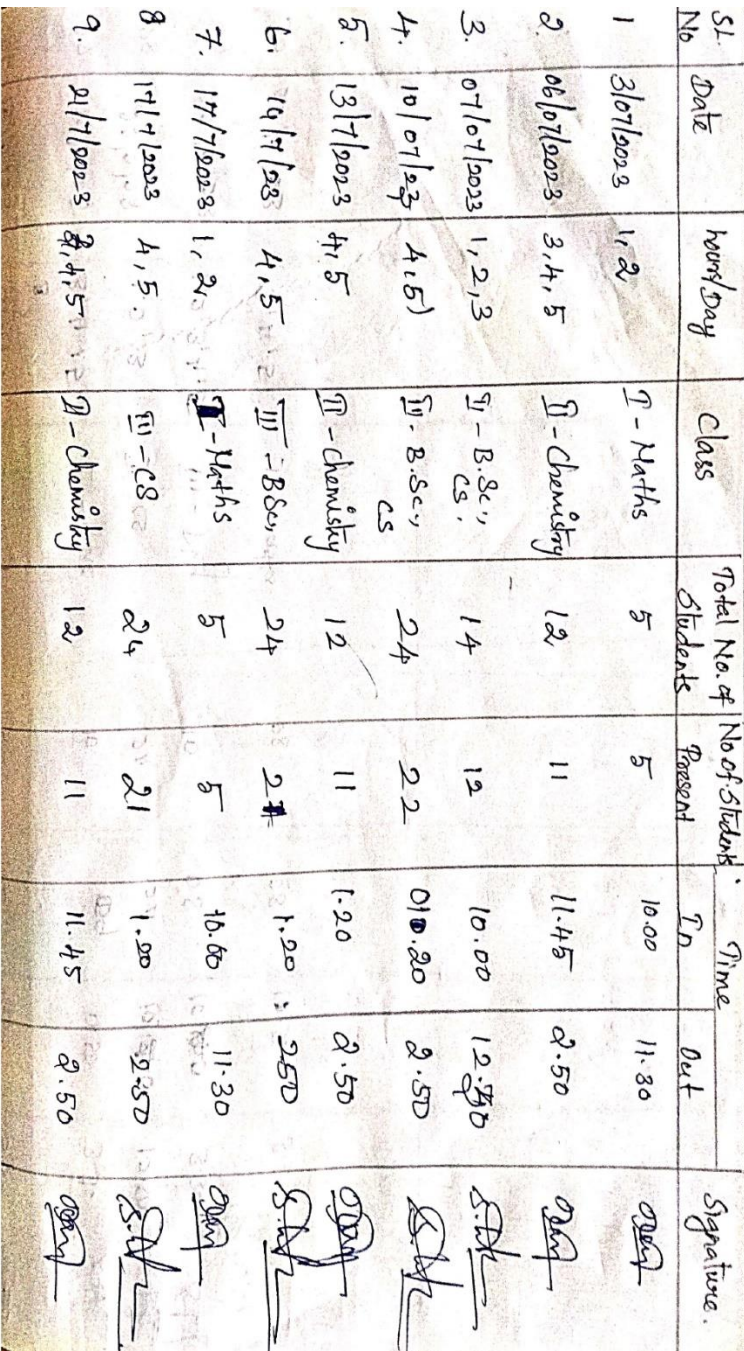 SL No Date hours/Day Class Total No. of Students No of Students Present Time In Out Signature.
1 3/07/2023 1, 2 I - Maths 5 5 10.00 11.30
2. 06/07/2023 3, 4, 5 II - Chemistry 12 11 11.45 2.50
3. 07/07/2023 1, 2, 3 II - B.Sc., CS. 14 12 10.00
4. 10/07/23 4, 5) III - B.Sc., CS 24 22 2.50
5. 13/7/2023 4, 5 II - chemistry 12 11 1.20 2.50
6. 14/7/23 4, 5 III - BSc, 24 1.20 250
7. 17/7/2023 1, 2. I - Maths 5 5 10.00 11.30
8 17/7/2023 4, 5 III - CS 24 21 2.50
9. 21/7/2023 3, 4, 5 II - Chemistry 12 11 11.45 2.50